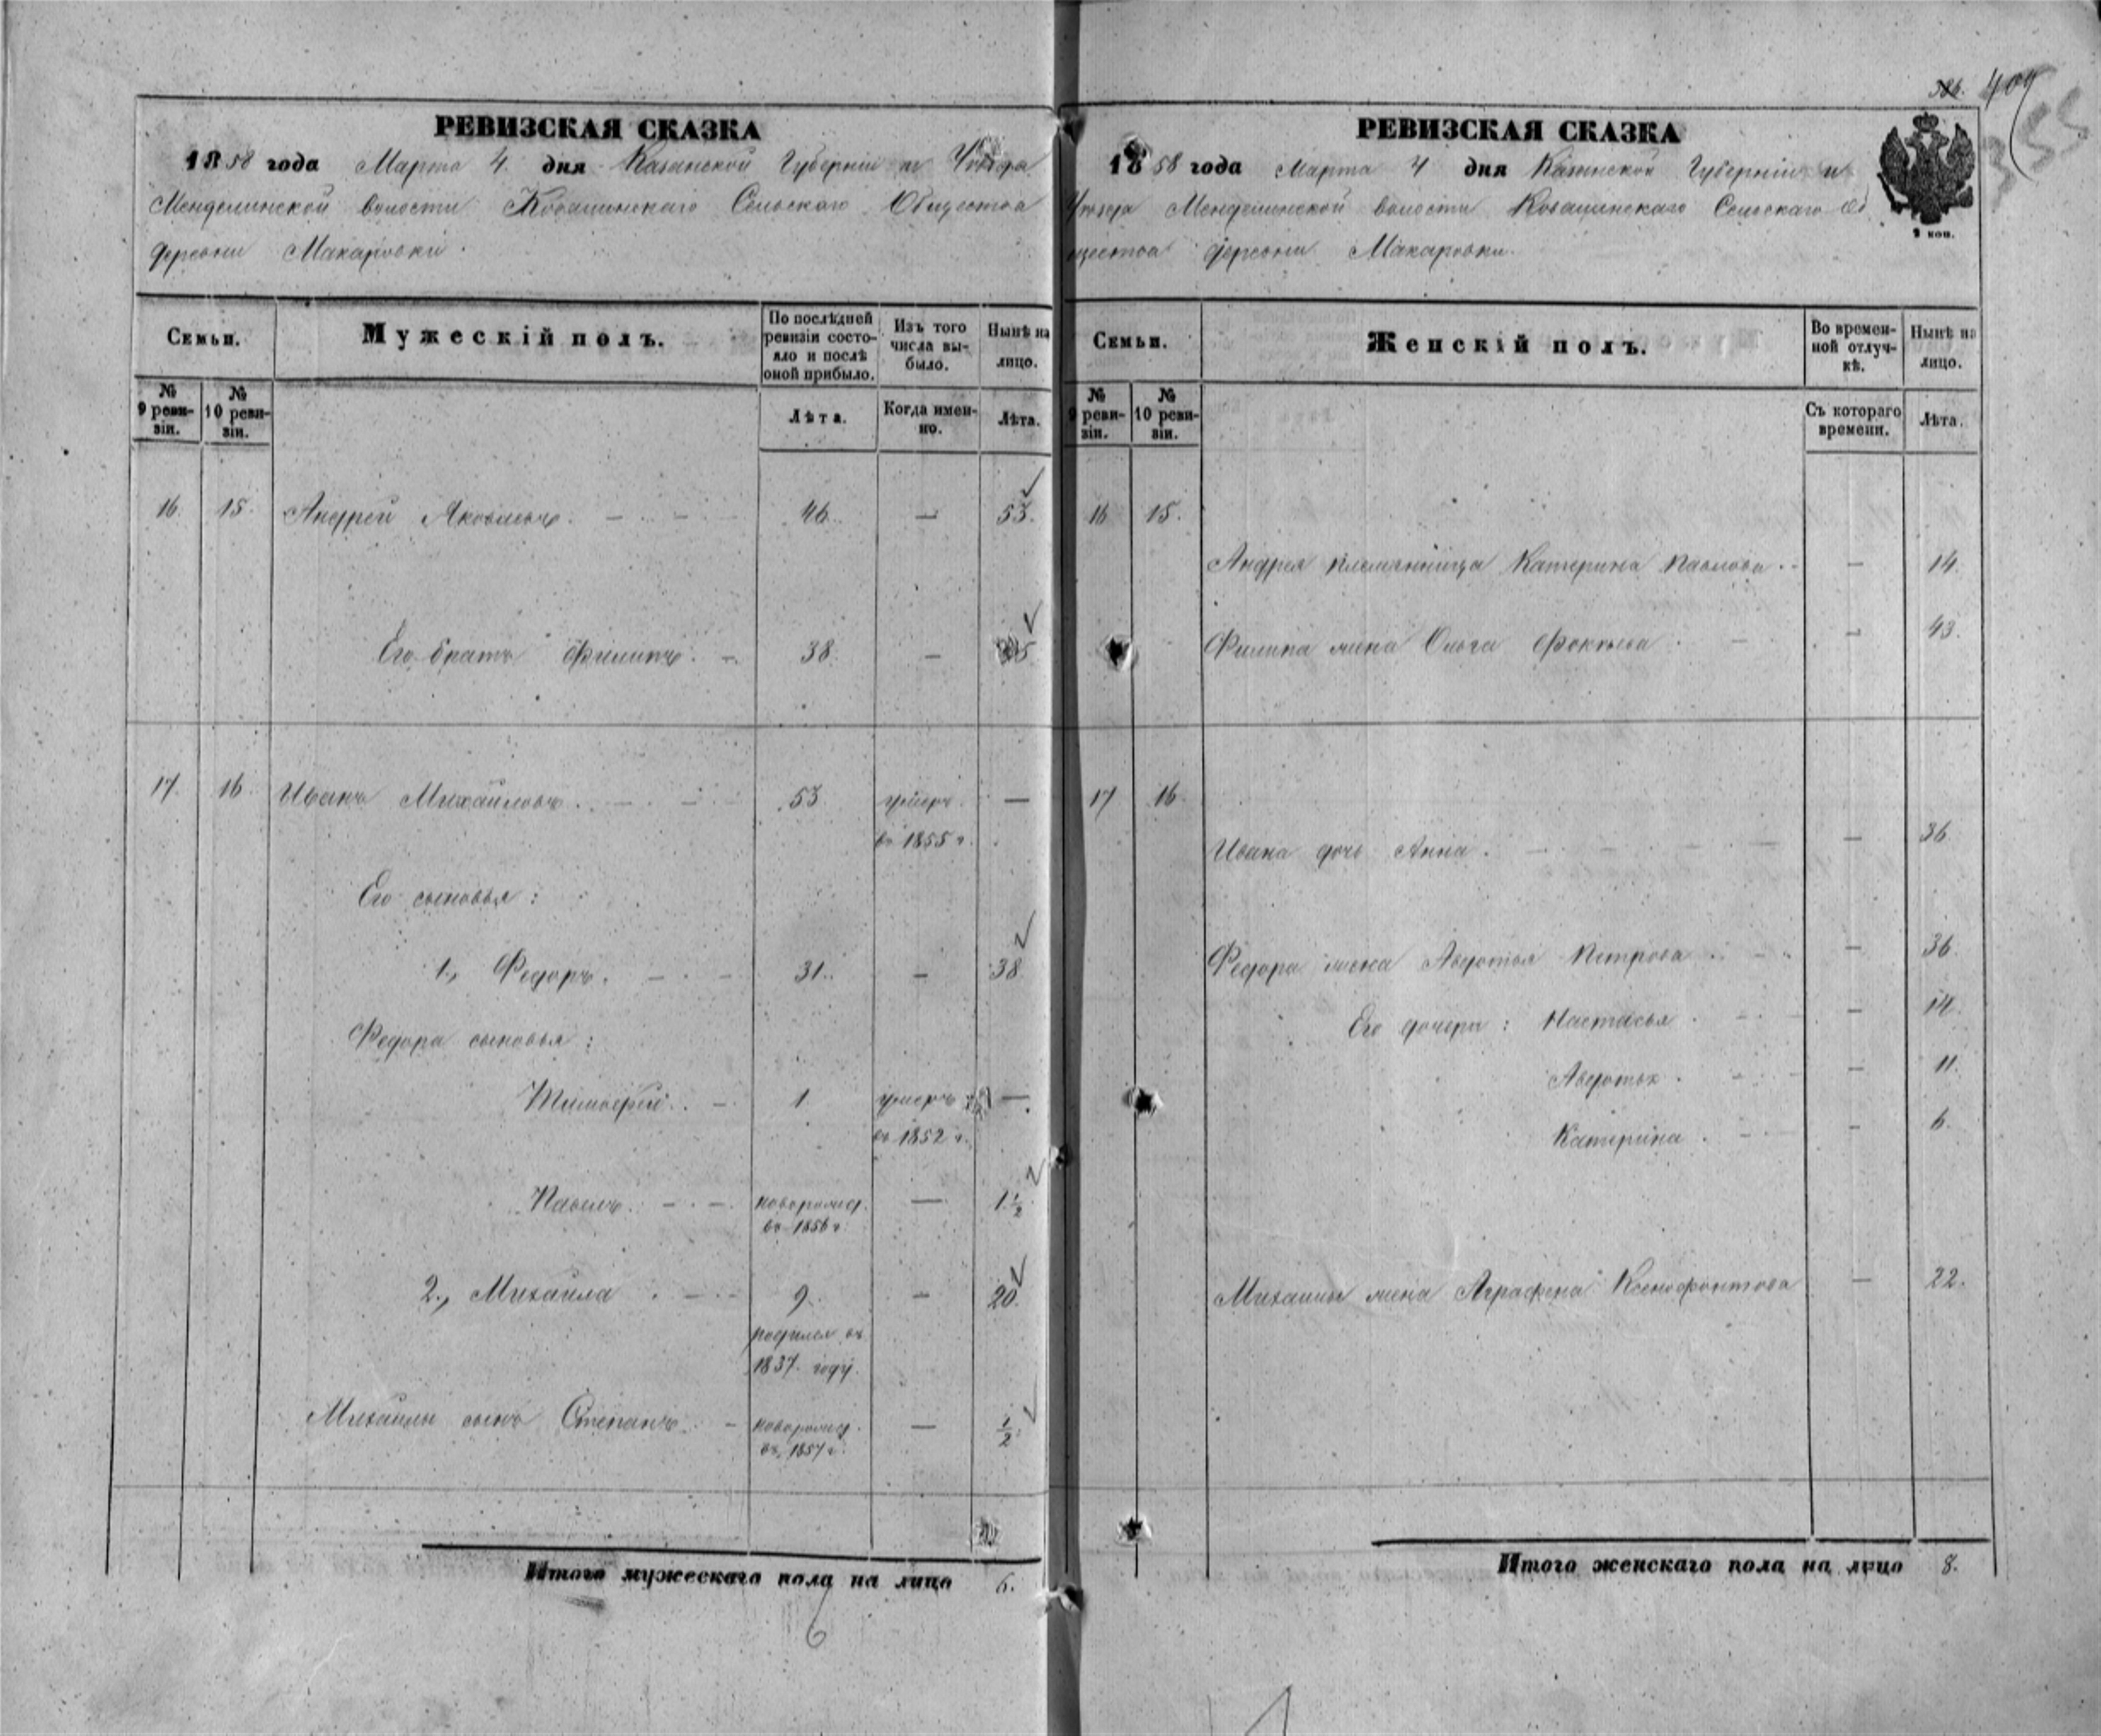 386. 409
355
РЕВИЗСКАЯ СКАЗКА
1858 года Марта 4 дня Казанской Губернии и Уѣзда
Менделинской волости Ковалинскаго Сельскаго Общества
деревни Макаровки.
Семьи.
Мужескій полъ.
По послѣдней ревизіи состояло и послѣ оной прибыло.
Изъ того числа выбыло.
Нынѣ на лицо.
№ 9 ревизіи.
№ 10 ревизіи.
Лѣта.
Когда именно.
Лѣта.
16. 15. Андрей Яковлевъ. 46. — 53.
Его братъ Филипъ. 38. — 45
17. 16 Иванъ Михайловъ. 53 умеръ —
въ 1855 г.
Его сыновья:
1., Федоръ. 31. — 38
Федора сыновья:
Тимофей. 1. умеръ —
въ 1852 г.
Павелъ. новорожд. — 1 1/2
въ 1856 г.
2., Михаила. 9. — 20.
родился въ
1837. году.
Михаилы сынъ Степанъ. новорожд. — 1/2
въ 1857 г.
Итого мужескаго пола на лицо 6.
6
РЕВИЗСКАЯ СКАЗКА
1858 года Марта 4 дня Казанской Губерніи и
Уѣзда Менделинской волости Ковалинскаго Сельскаго Об
щества деревни Макаровки.
2 коп.
Семьи.
Женскій полъ.
Во временной отлучкѣ.
Нынѣ на лицо.
№ 9 ревизіи.
№ 10 ревизіи.
Съ котораго времени.
Лѣта.
16 15.
Андрея племянница Катерина Павлова. — 14.
Филипа жена Ольга Фоктева — 43.
17 16.
Ивана дочь Анна. — 36
Федора жена Авдотья Петрова. — 36.
Его дочери: Настасья. — 14.
Авдотья. — 11.
Катерина. — 6.
Михаилы жена Аграфена Ксенофонтова — 22.
Итого женскаго пола на лицо 8.